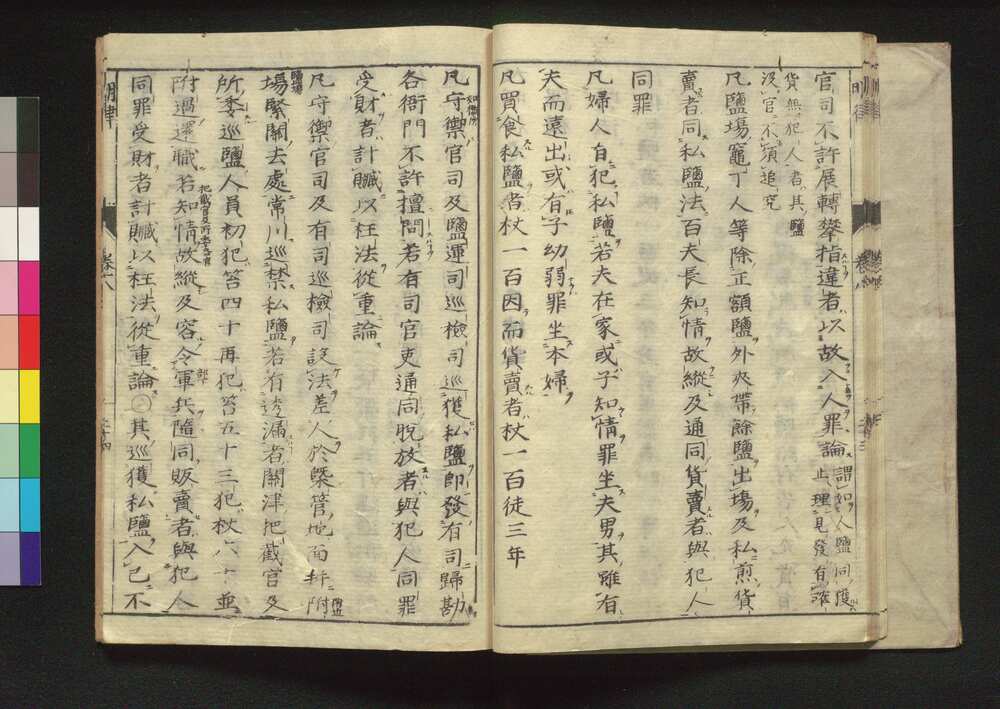 官司不許展轉攀指違者以故入人罪論謂如人鹽同獲
止理見發有確
貨無犯人者其鹽
沒官不須追究
凡鹽場竈丁人等除正額鹽外夾帶餘鹽出場及私煎貨
賣者同私鹽法百夫長知情故縱及通同貨賣者與犯人
同罪
凡婦人自犯私鹽若夫在家或子知情罪坐夫男其雖有
夫而遠出或有子幼弱罪坐本婦
凡買食私鹽者杖一百因而貨賣者杖一百徒三年
凡守禦官司及鹽運司巡檢司巡獲私鹽即發有司歸勘
各衙門不許擅問若有司官吏通同脫放者與犯人同罪
受財者計贓以枉法從重論
凡守禦官司及有司巡檢司設法差人於槩管地面並附
場緊關去處常川巡禁私鹽若有透漏者關津把截官及
所委巡鹽人員初犯笞四十再犯笞五十三犯杖八十並
附過還職若知情故縱及容令軍兵隨同販賣者與犯人
同罪受財者計贓以枉法從重論○其巡獲私鹽入己不
明律
卷八